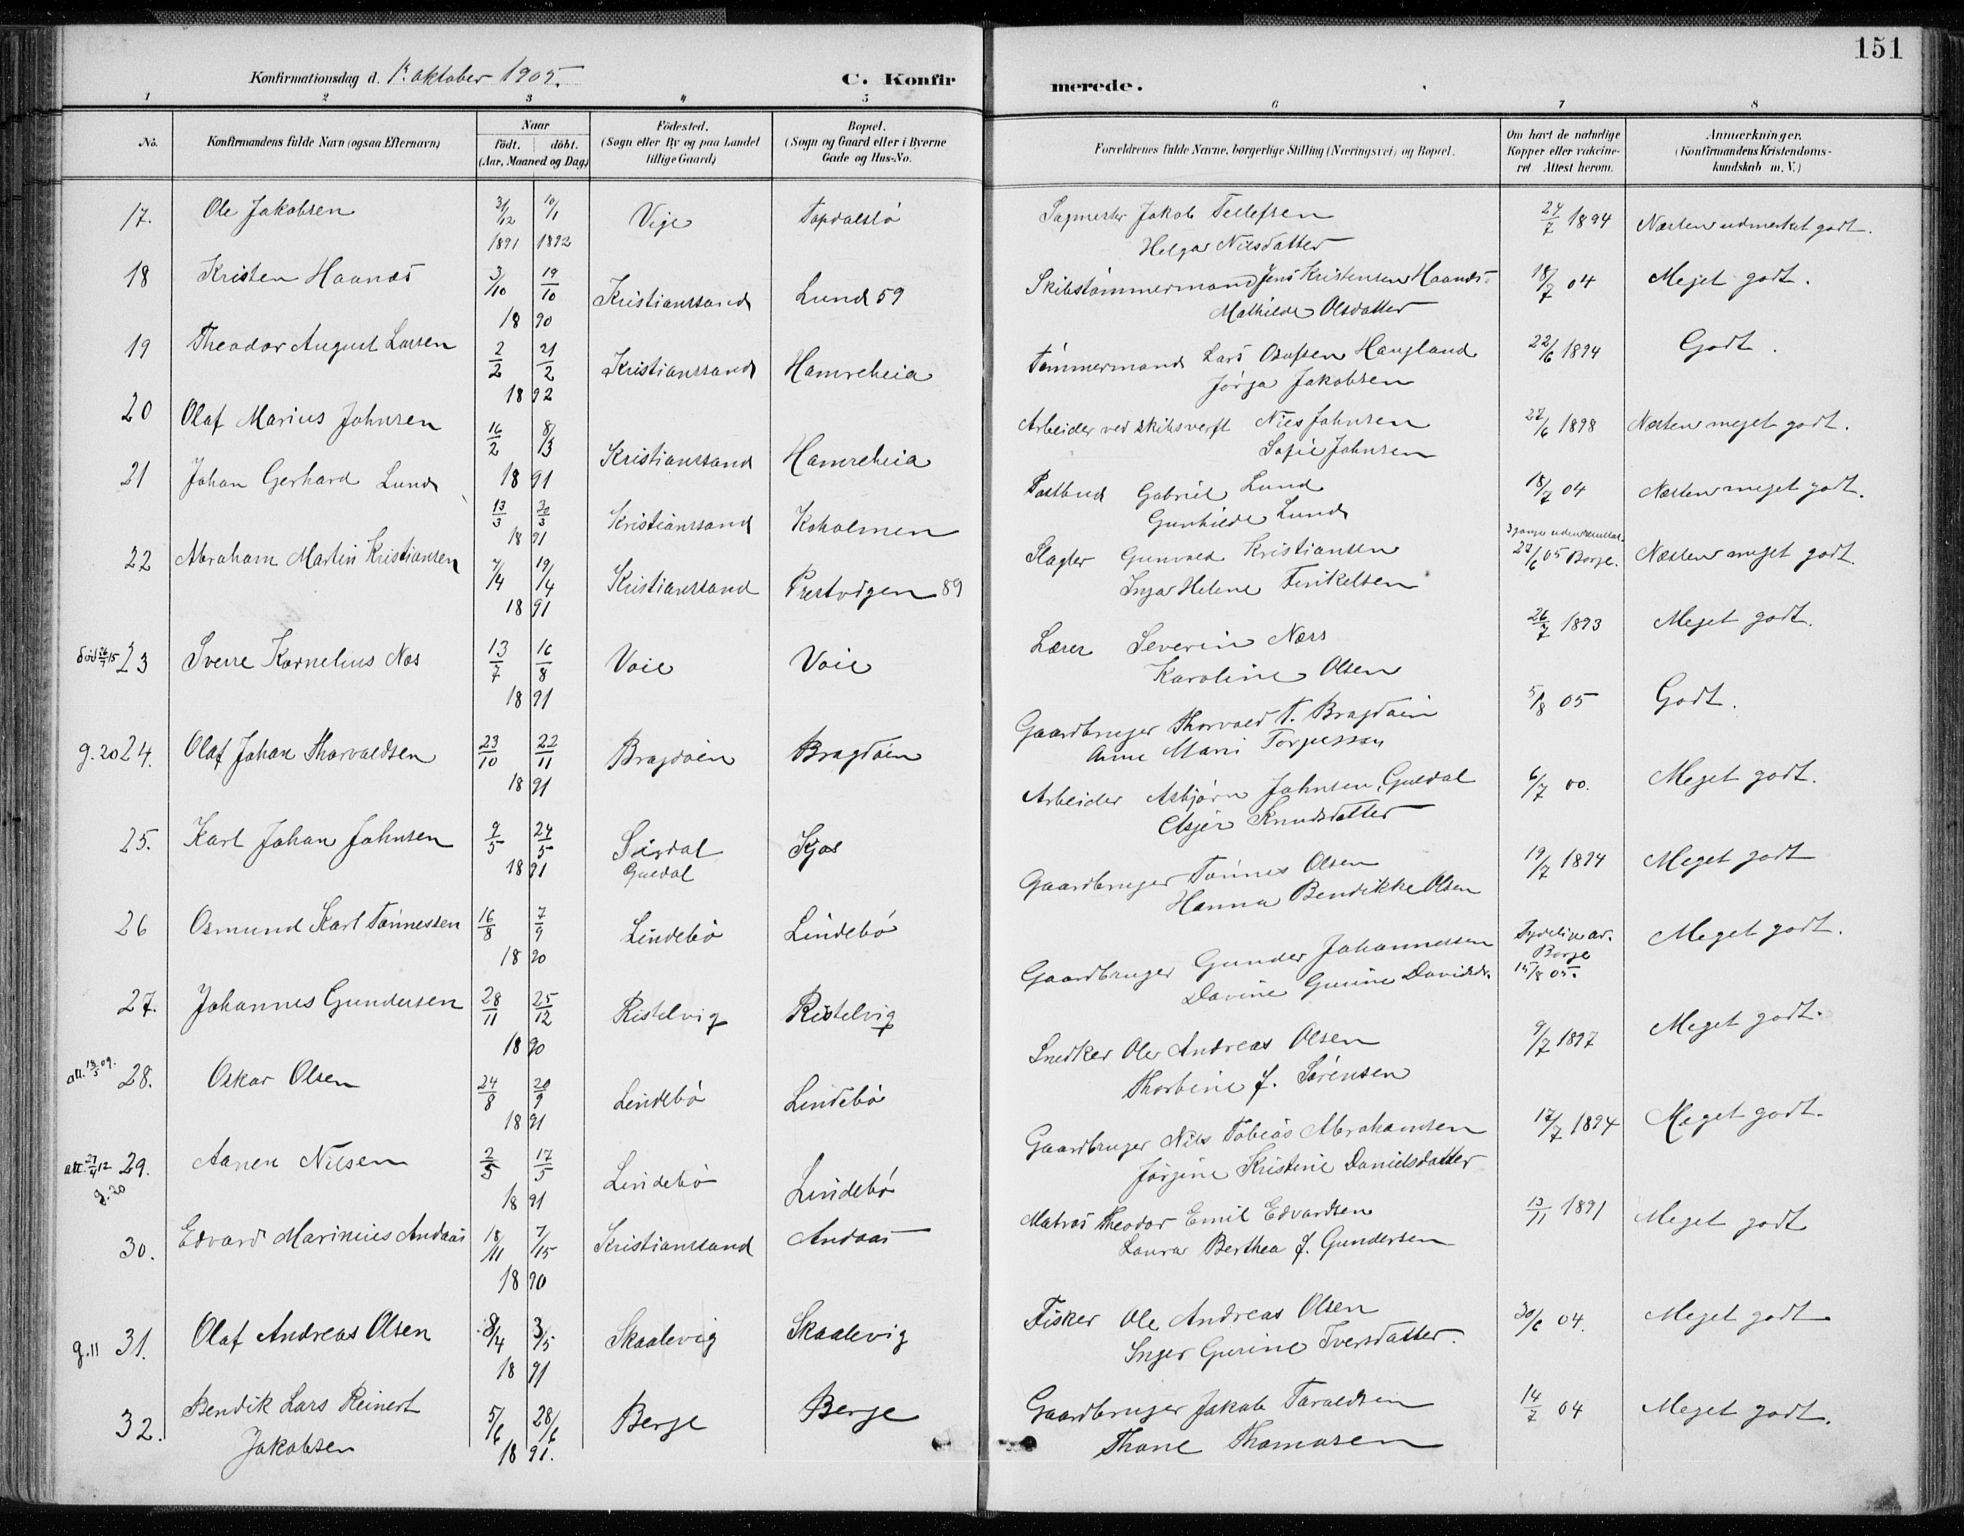 151
Konfirmationsdag d. 1ste oktober 1905.
C. Konfirmerede.
1 2 3 4 5 6 7 8
No.
Konfirmandens fulde Navn (ogsaa Efternavn)
Naar
født. døbt.
(Aar, Maaned og Dag)
Fødested.
(Sogn eller By og paa Landet
tillige Gaard)
Bopæl.
(Sogn og Gaard eller i Byerne
Gade og Hus-No.
Forældrenes fulde Navne, borgerlige Stilling (Næringsvei) og Bopæl.
Om havt de naturlige
Kopper eller vakcine-
ret Attest herom.
Anmærkninger.
(Konfirmandens Kristendoms-
kundskab m. V.)
17. Ole Jakobsen 3/12 1891 10/1 1892 Vige Topdalslø Sagmester Jakob Tellefsen 24/7 1894 Næsten udmerket godt.
Helga Nilsdatter
18 Kristen Haanæs 3/10 19/10 Kristianssand Lund 59 Skibstømmermand Jens Kristensen Haanæs 18/7 04 Meget godt.
1890 Mathilde Olsdatter
19 Theodor August Larsen 2/2 21/2 Kristianssand Hamreheia Tømmermand Lars Osufsen Haugland 22/6 1894 Godt.
1892 Jørga Jakobsen
20 Olaf Marius Johnsen 16/2 8/3 Kristianssand Hamreheia Arbeider ved skibsverft Nils Johnsen 27/6 1898 Næsten meget godt.
1891 Sofie Johnsen
21 Johan Gerhard Lund 13/3 30/3 Kristianssand Koholmen Postbud Gabriel Lund 18/7 04 Næsten meget godt.
1891 Gunhilde Lund
22 Abraham Martin Kristiansen 7/4 19/4 Kristianssand Prestvigen 89 Slagter Gunvald Kristiansen 3 gange uden resultat. 27/6 05 Borge. Næsten meget godt.
1891 Inga Helene Terikelsen
død 26/7 15 23 Sverre Kornelius Næs 13/7 16/8 Voie Voie Lærer Severin Næss 26/7 1893 Meget godt.
1891 Karoline Olsen
g. 20 24. Olaf Johan Thorvaldsen 23/10 22/11 Bragdøen Bragdøen Gaardbruger Thorvald T. Bragdøen 5/8 05 Godt.
1891 Anne Marie Torjussen
25. Karl Johan Johnsen 9/5 24/5 Sirdal Kjos Arbeider Asbjørn Johnsen, Guldal 6/7 00. Meget godt.
1891 Guldal Asjer Knudsdatter
26 Osmund Karl Tønnessen 16/8 7/9 Lindebø Lindebø Gaardbruger Tønnes Olsen 19/7 1894 Meget godt
1890 Hanna Bendikke Olsen
27. Johannes Gundersen 28/11 25/12 Ristelvig Ristelvig Gaardbruger Gunder Johannessen Tydelige ar. Borge 15/8 05. Meget godt.
1890 Davine Gurine Davidsdr.
att. 18/5 09. 28. Oskar Olsen 24/8 20/9 Lindebø Lindebø Snedker Ole Andreas Olsen 9/7 1897 Meget godt.
1891 Thorbine J. Sørensen
att. 27/4 12 g. 20 29. Aanen Nilsen 2/5 17/5 Lindebø Lindebø Gaardbruger Nils Tobias Abrahamsen 17/7 1894 Meget godt.
1891 Jørgine Kristine Danielsdatter
30. Edvard Marinius Andaas 18/11 7/15 Kristianssand Andaas Matros Theodor Emil Edvardsen 13/11 1891 Meget godt
1890 Laura Berthea J. Gundersen
g. 11 31. Olaf Andreas Olsen 8/4 3/5 Skaalevig Skaalevig Fisker Ole Andreas Olsen 30/6 04. Meget godt
1891 Inger Gurine Iversdatter.
32. Bendik Lars Reinert 5/6 28/6 Berge Berge Gaardbruger Jakob Taraldsen 14/7 04 Meget godt.
Jakobsen 1891. Thane Thomasen